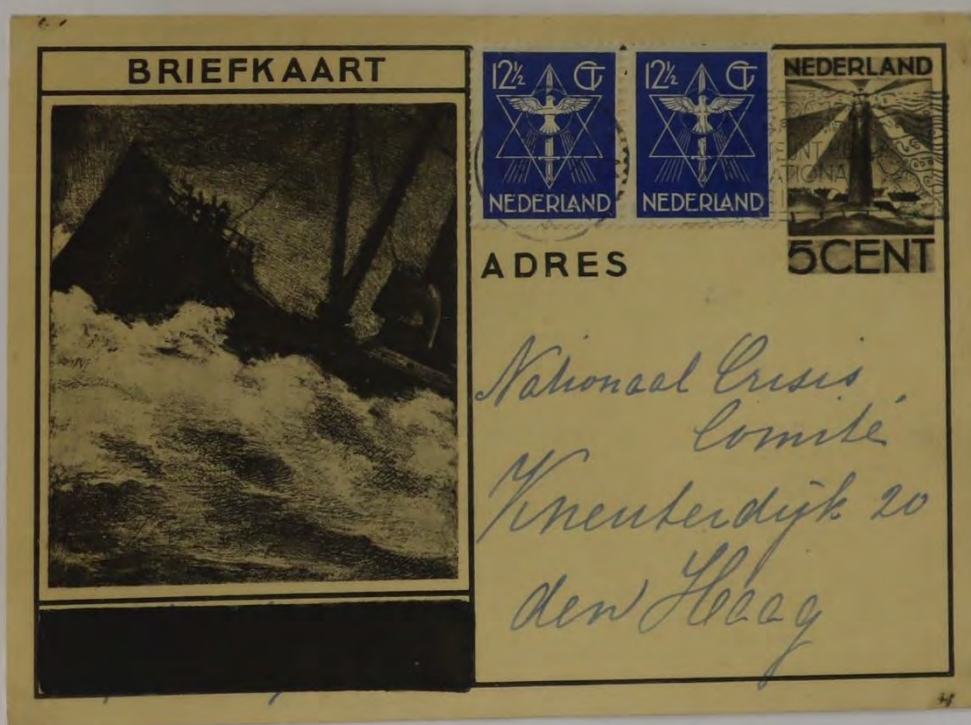 BRIEFKAART
12½ CT
NEDERLAND
12½ CT
NEDERLAND
NEDERLAND
5 CENT
ADRES
Nationaal Crisis
Comité
Kneuterdijk 20
den Haag